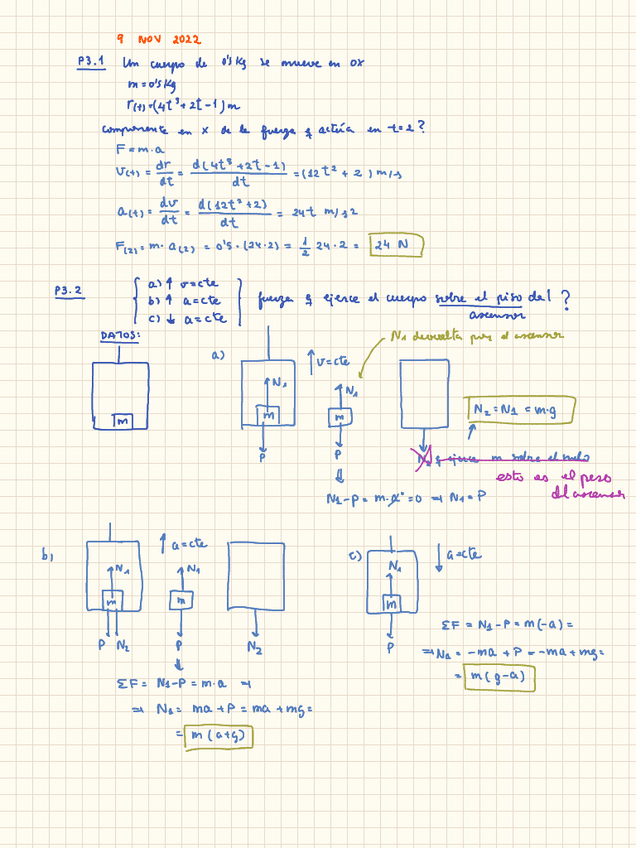 9 NOV 2022
P3.1 Un cuerpo de 0'5 Kg se mueve en OX
m = 0'5 Kg
r(t) = (4t³ + 2t - 1) m
componente en x de la fuerza q actúa en t=2?
F = m·a
v(t) = dr/dt = d(4t³ + 2t - 1)/dt = (12t² + 2) m/s
a(t) = dv/dt = d(12t² + 2)/dt = 24t m/s2
F(2) = m· a(2) = 0'5 · (24·2) = 1/2 24·2 = 24 N
P3.2
a) ↑ v=cte
b) ↑ a=cte
c) ↓ a=cte
fuerza q ejerce el cuerpo sobre el piso del ascensor?
DATOS:
m
a)
N1
m
P
↑ v=cte
N1
m
P
N1 devuelta por el ascensor
N2 = N1 = m·g
N2 q ejerce m sobre el suelo
esto es el peso
del ascensor
N1 - P = m·a = 0 ⇒ N1 = P
b)
N1
m
P N2
↑ a=cte
N1
m
P
N2
ΣF = N1 - P = m·a ⇒
⇒ N1 = ma + P = ma + mg =
= m(a+g)
c)
N1
m
P
↓ a=cte
ΣF = N1 - P = m(-a) =
⇒ N1 = -ma + P = -ma + mg =
= m(g-a)